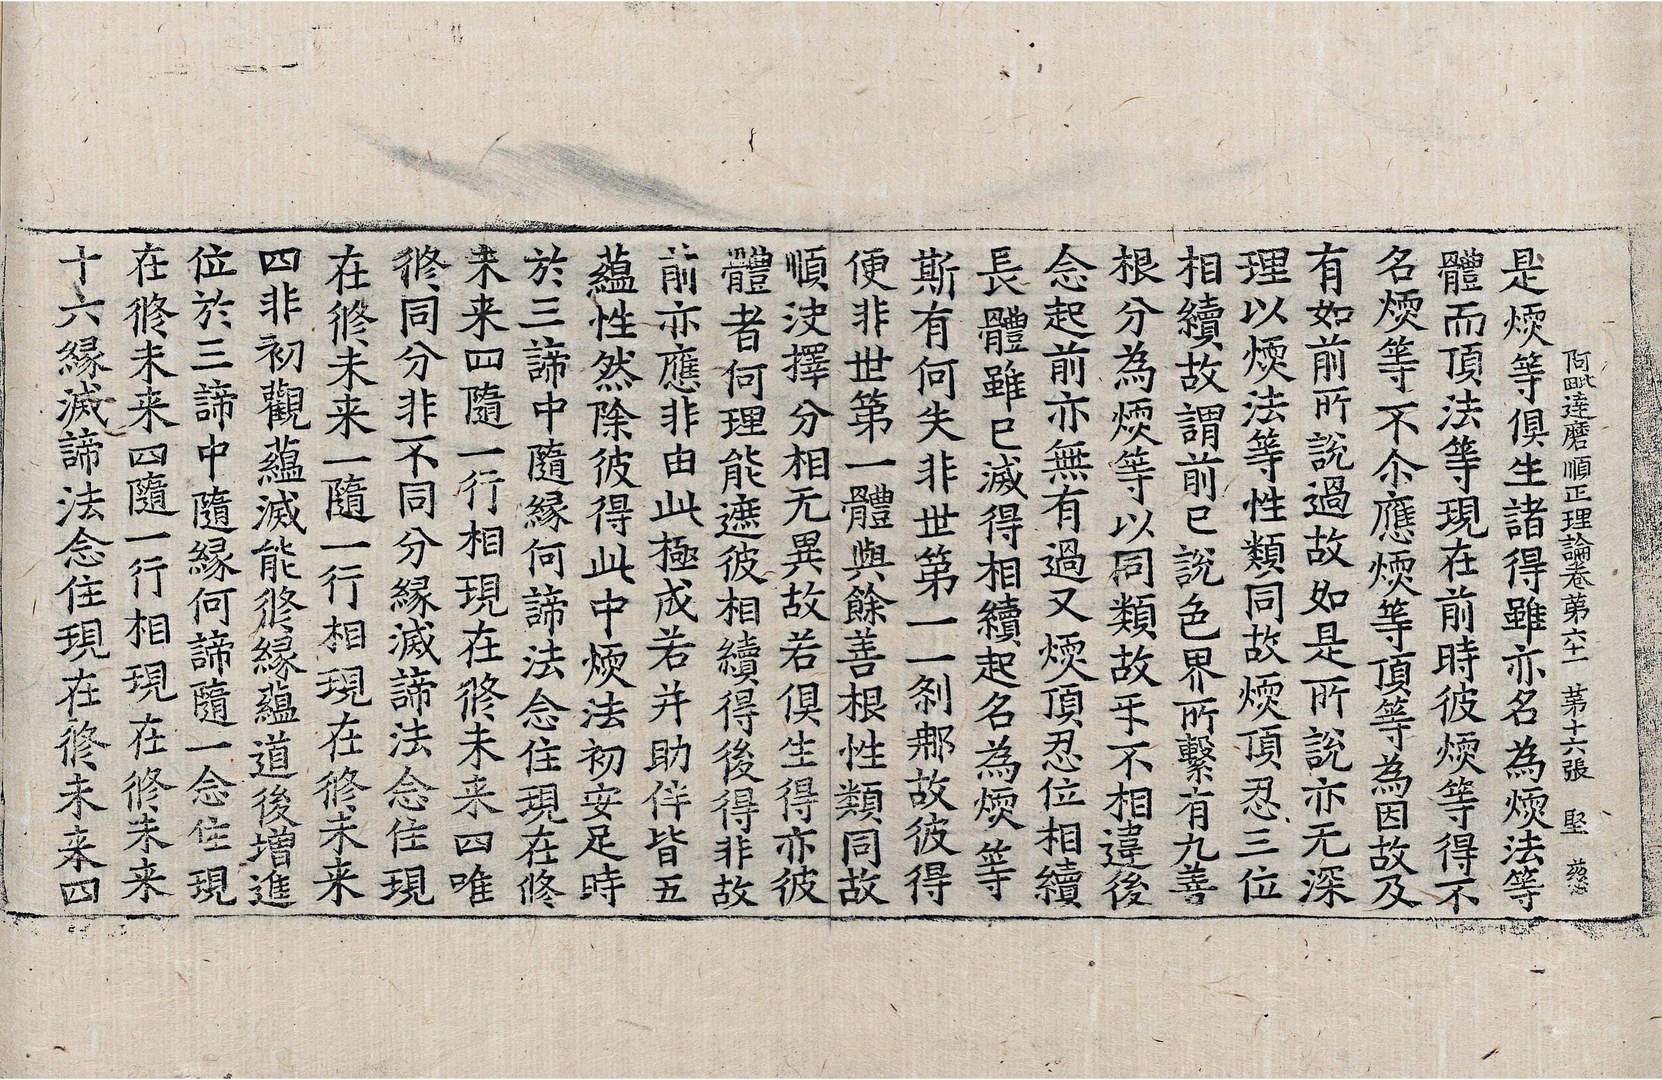 阿毗達磨順正理論卷第六十一 第十六張 堅
是煗等俱生諸得雖亦名為煗法等
體而頂法等現在前時彼煗等得不
名煗等不尒應煗等頂等為因故及
有如前所說過故如是所說亦无深
理以煗法等性類同故煗頂忍三位
相續故謂前已說色界所繫有九善
根分為煗等以同類故乎不相違後
念起前亦無有過又煗頂忍位相續
長體雖已滅得相續起名為煗等
斯有何失非世第一一剎那故彼得
便非世第一體與餘善根性類同故
順決擇分相无異故若俱生得亦彼
體者何理能遮彼相續得後得非故
前亦應非由此極成若并助伴皆五
蘊性然除彼得此中煗法初安足時
於三諦中隨緣何諦法念住現在修
未来四隨一行相現在修未来四唯
修同分非不同分緣滅諦法念住現
在修未来一隨一行相現在修未来
四非初觀蘊滅能修緣蘊道後增進
位於三諦中隨緣何諦隨一念住現
在修未来四隨一行相現在修未来
十六緣滅諦法念住現在修未来四